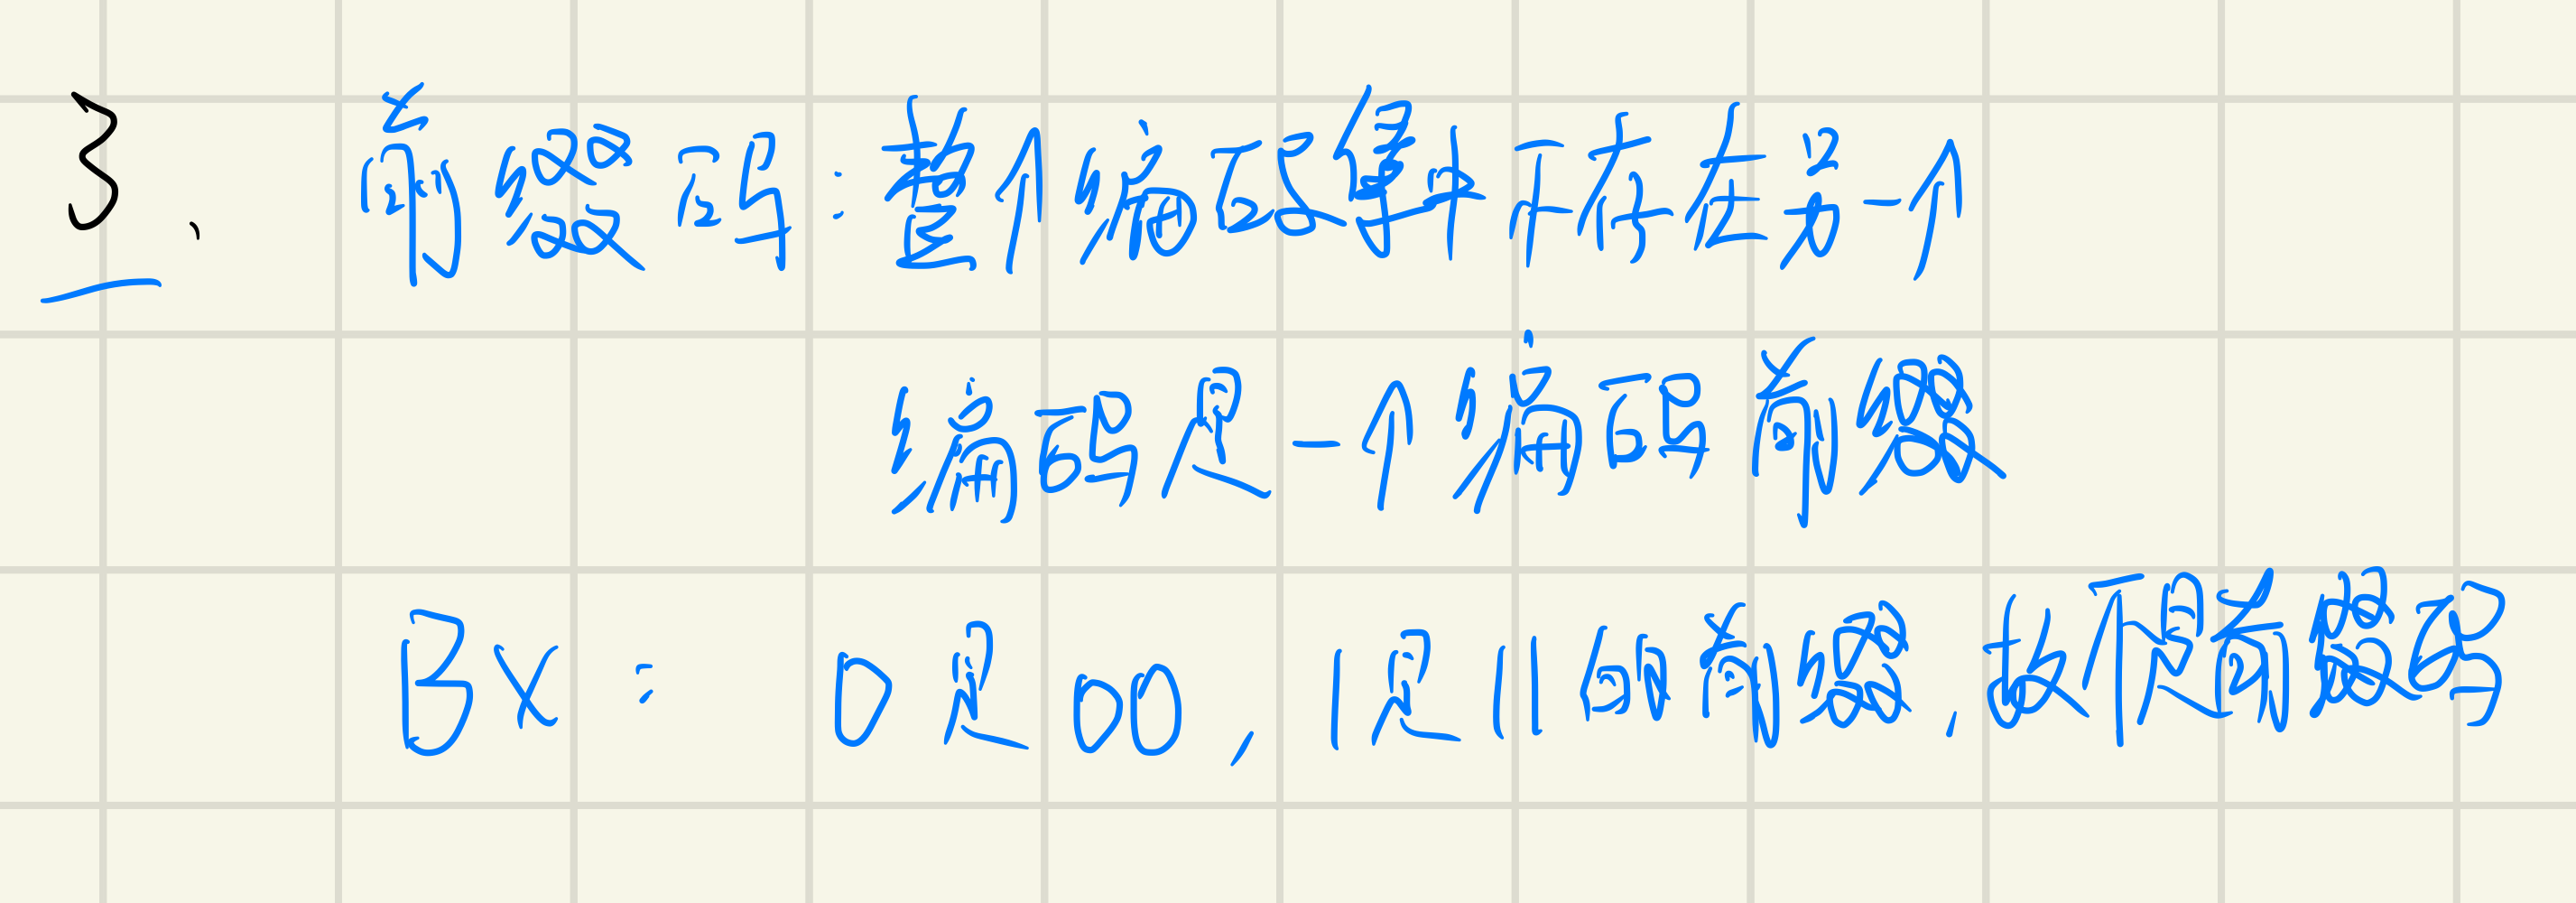 3、 前缀码：整个编码集中不存在另一个
编码是一个编码前缀
B×： 0是00，1是11的前缀，故不是前缀码